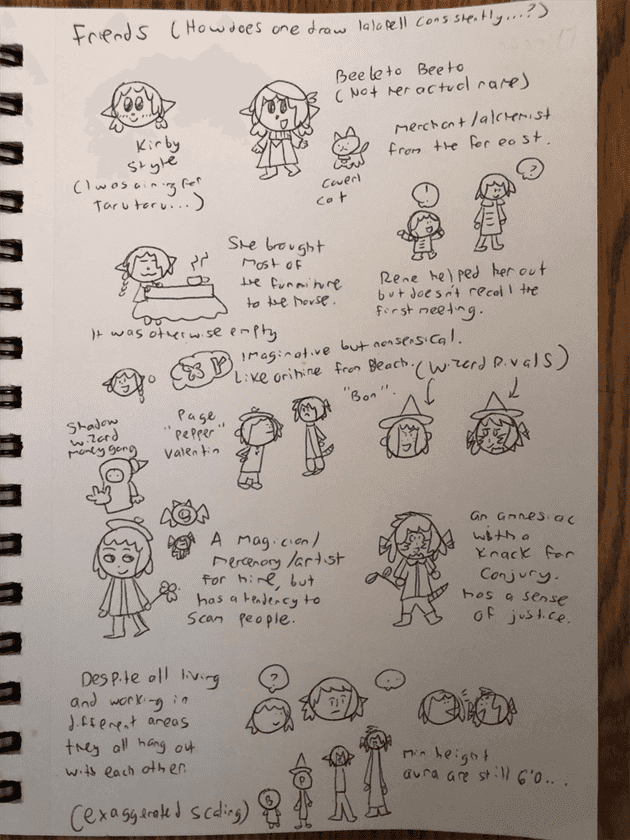 Friends (How does one draw lalafell consistently...?)
Beebeto Beeto
(Not her actual name)
Kirby
Style
(I was aiming for
Tarutaru...)
cat
Merchant/alchemist
from the far east.
!
?
She brought
most of
the furniture
to the house.
It was otherwise empty
Rene helped her out
but doesn't recall the
first meeting.
Imaginative but nonsensical.
Like orihime from Bleach.
(Wizard Rivals)
"Bon".
Shadow
wizard
money gang
Page
"Pepper"
Valentin
A magician/
Mercenary/artist
for hire, but
has a tendency to
scam people.
an amnesiac
with a
knack for
conjury.
has a sense
of justice.
Despite all living
and working in
different areas
they all hang out
with each other.
?
...
(exaggerated scaling)
B
P
min height
aura are still 6'0...